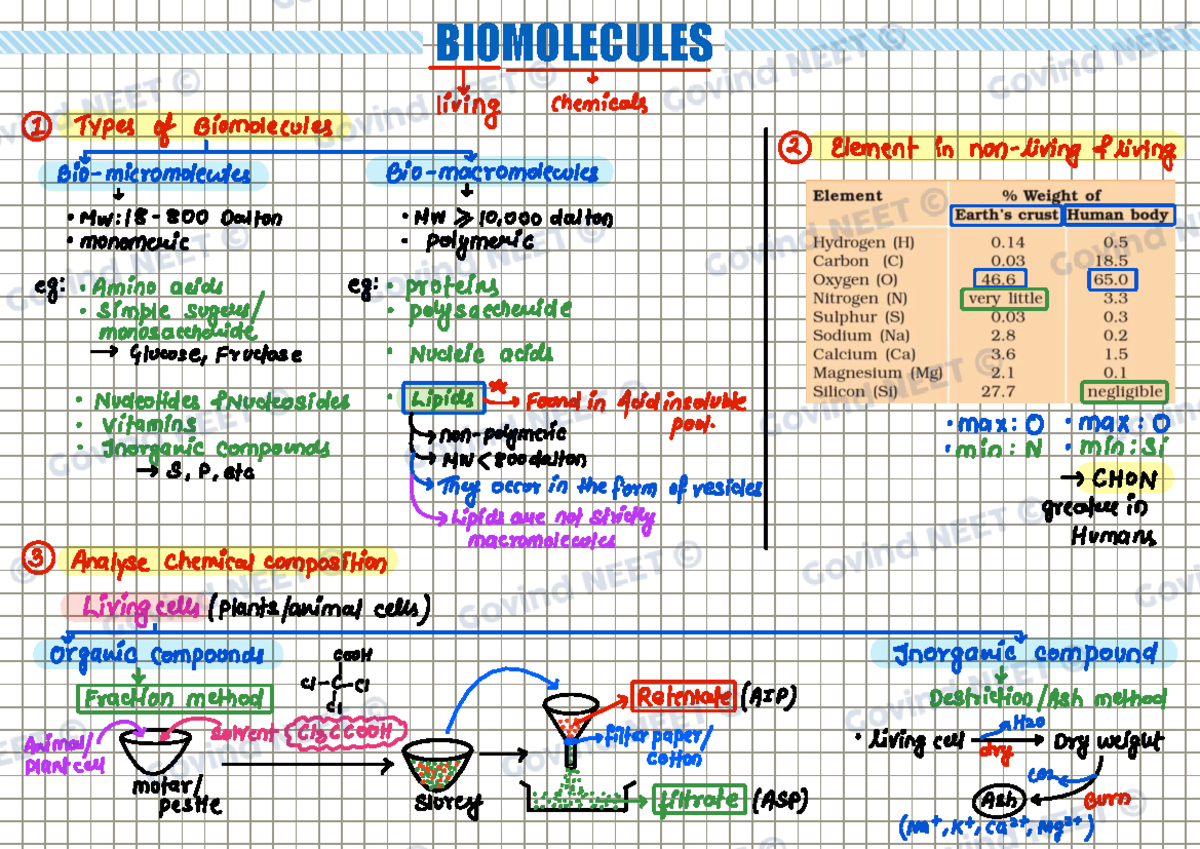 BIOMOLECULES
living chemicals
① Types of Biomolecules
Bio-micromolecules
• MW: 18 - 800 Dalton
• monomeric
eg: • Amino acids
• Simple sugars/
monosaccharide
→ Glucose, Fructose
• Nucleotides & Nucleosides
• Vitamins
• Inorganic compounds
→ S, P, etc
Bio-macromolecules
• MW ⩾ 10,000 dalton
• polymeric
eg: • proteins
• polysaccharide
• Nucleic acids
• Lipids * → Found in Acid insoluble
pool.
→ non-polymeric
→ MW < 800 dalton
→ They occur in the form of vesicles
→ Lipids are not strictly
macromolecules
② Element in non-living & living
Element % Weight of
Earth's crust Human body
Hydrogen (H) 0.14 0.5
Carbon (C) 0.03 18.5
Oxygen (O) 46.6 65.0
Nitrogen (N) very little 3.3
Sulphur (S) 0.03 0.3
Sodium (Na) 2.8 0.2
Calcium (Ca) 3.6 1.5
Magnesium (Mg) 2.1 0.1
Silicon (Si) 27.7 negligible
• max: O • max: O
• min: N • min: Si
→ CHON
greater in
Humans
③ Analyse Chemical composition
Living cells (Plants/animal cells)
Organic compounds
Fraction method
COOH
Cl-C-Cl
Cl
Animal/
plant cell
solvent Cl3CCOOH
motar/
pestle
Slurry
Retentate (AIP)
Filter paper/
cotton
Filtrate (ASP)
Inorganic compound
Destriction/Ash method
• living cell → Dry weight
H2O
dry
CO2
Burn
Ash
(Na+, K+, Ca2+, Mg2+)
Govind NEET ©